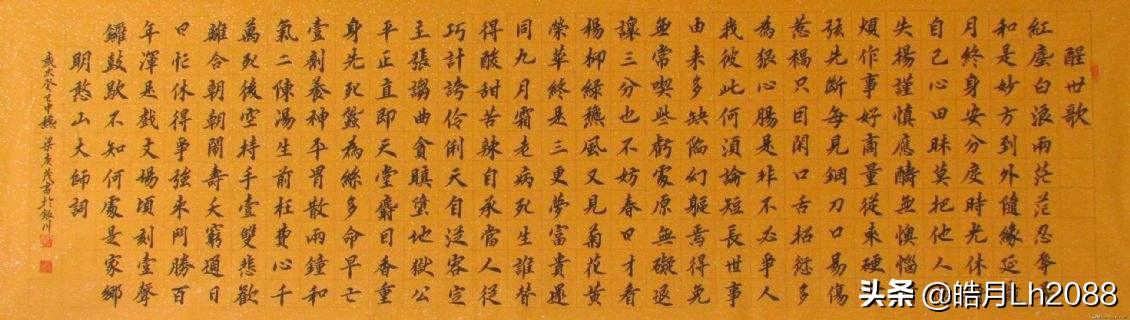 醒世歌
紅塵白浪兩茫茫忍辱
和是妙方到處隨緣延
月終身安分度時光休
自己心田昧莫把他人
失揚謹慎應酧無懊惱
煩作事好商量從來硬
弦先斷每見鋼刀口易傷
惹禍只因閑口舌招愆多
為狠心腸是非不必爭人
我彼此何須論短長世事
由來多缺陷幻軀焉得免
無常喫些虧處原無礙退
讓三分也不妨春日才看
楊柳綠秋風又見菊花黃
榮華終是三更夢富貴還
同九月霜老病死生誰替
得酸甜苦辣自承當人從
巧計誇伶俐天自從容定
主張謟曲貪瞋墮地獄公
平正直即天堂麝因香重
身先死蠶為絲多命早亡
壹劑養神平胃散兩鐘和
氣二陳湯生前枉費心千
萬死後空持手壹雙悲歡
離合朝朝鬧壽夭窮通日
日忙休得爭強來鬥勝百
年渾是戲文場頃刻壹聲
鑼鼓歇不知何處是家鄉
明憨山大師詞
歲次癸巳中秋梁慶茂書於銀川
头条 @皓月Lh2088